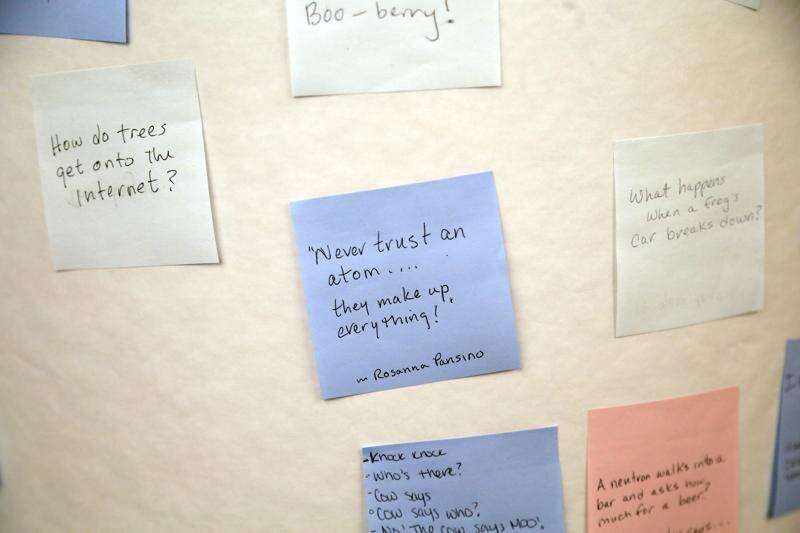 Boo-berry!
How do trees
get onto the
Internet?
"Never trust an
atom....
they make up
everything!
~ Rosanna Pansino
What happens
when a frog's
car breaks down?
-Knock knock
-Who's there?
-Cow says
-Cow says who?
-No! The cow says Moo!
A neutron walks into a
bar and asks how
much for a beer?